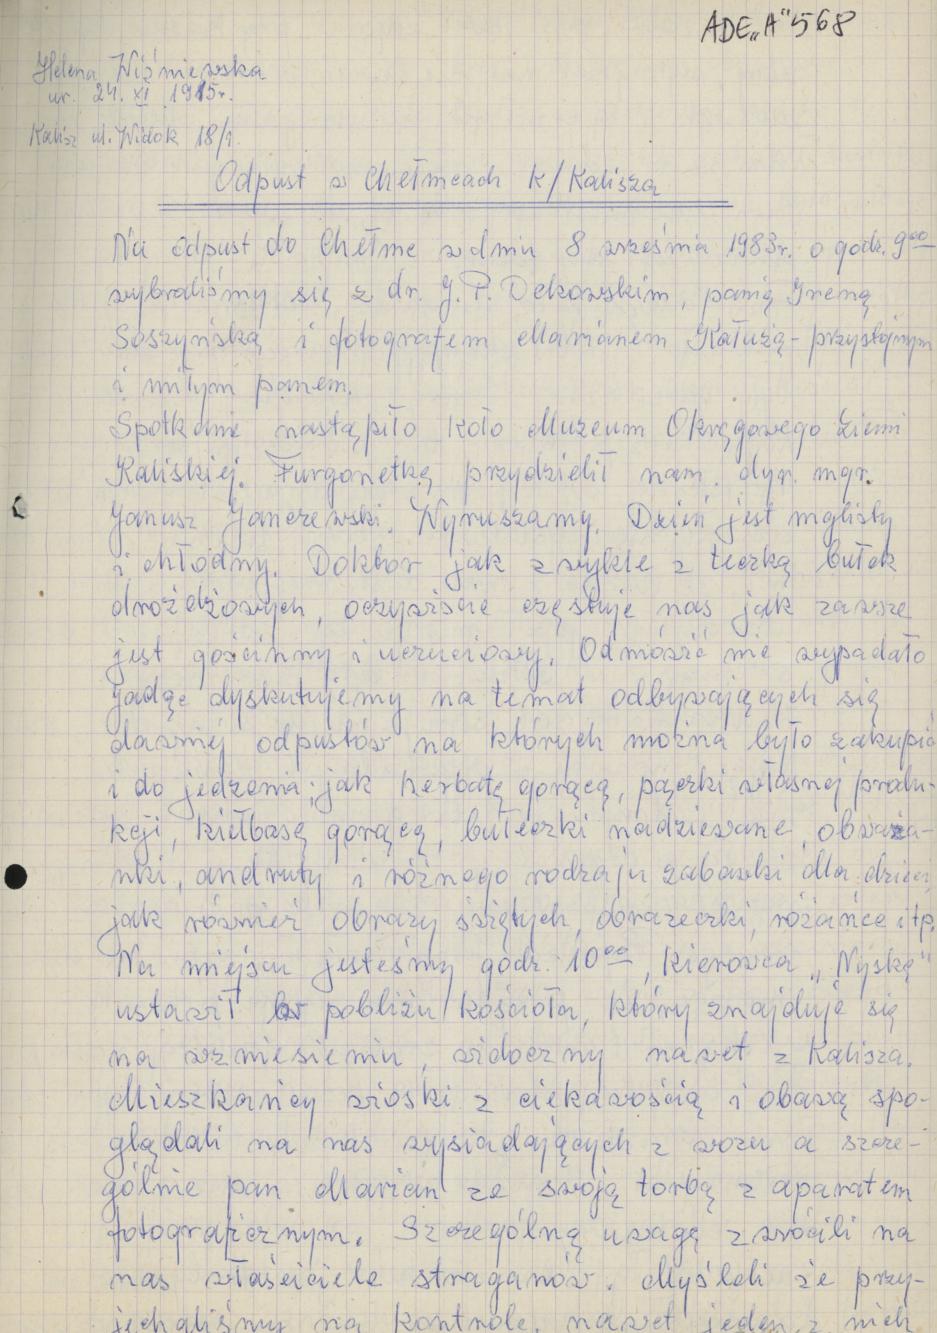 ADE„A"568
Helena Wiśniewska
ur. 24. XI 1915r.
Kalisz ul. Widok 18/1.
Odpust w Chełmcach k/Kalisza
Na odpust do Chełmc w dniu 8 wreśnia 1983r. o godz. 9⁰⁰
wybraliśmy się z dr. J. P. Dekowskim, panią Ireną
Soszyńską i fotografem Marianem Kałużą - przystojnym
i miłym panem.
Spotkanie nastąpiło koło Muzeum Okręgowego Ziemi
Kaliskiej. Furgonetkę przydzielił nam dyr. mgr.
Janusz Janczewski. Wyruszamy. Dzień jest mglisty
i chłodny. Doktor jak zwykle z teczką bułek
drożdżowych, oczywiście częstuje nas jak zawsze
jest gościnny i uczuciowy. Odmówić nie wypadało
jadąc dyskutujemy na temat odbywających się
dawniej odpustów na których można było zakupić
i do jedzenia; jak herbatę gorącą, pączki własnej produ-
kcji, kiełbasę gorącą, bułeczki nadziewane, obwarza-
nki, andruty i różnego rodzaju zabawki dla dzieci
jak również obrazy świętych, obrazeczki, różańce itp.
Na miejscu jesteśmy godz. 10⁰⁰, kierowca „Nyskę"
ustawił w pobliżu kościoła, który znajduje się
na wzniesieniu, widoczny nawet z Kalisza.
Mieszkańcy wioski z ciekawością i obawą spo-
glądali na nas wysiadających z wozu a szcze-
gólnie pan Marian ze swoją torbą z aparatem
fotograficznym. Szczególną uwagę zwrócili na
nas właściciele straganów. Myśleli że przy-
jechaliśmy na kontrolę, nawet jeden z nich